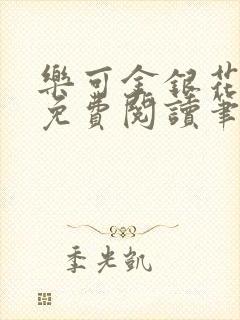 樂可金銀花
免費閱讀筆
季光凱